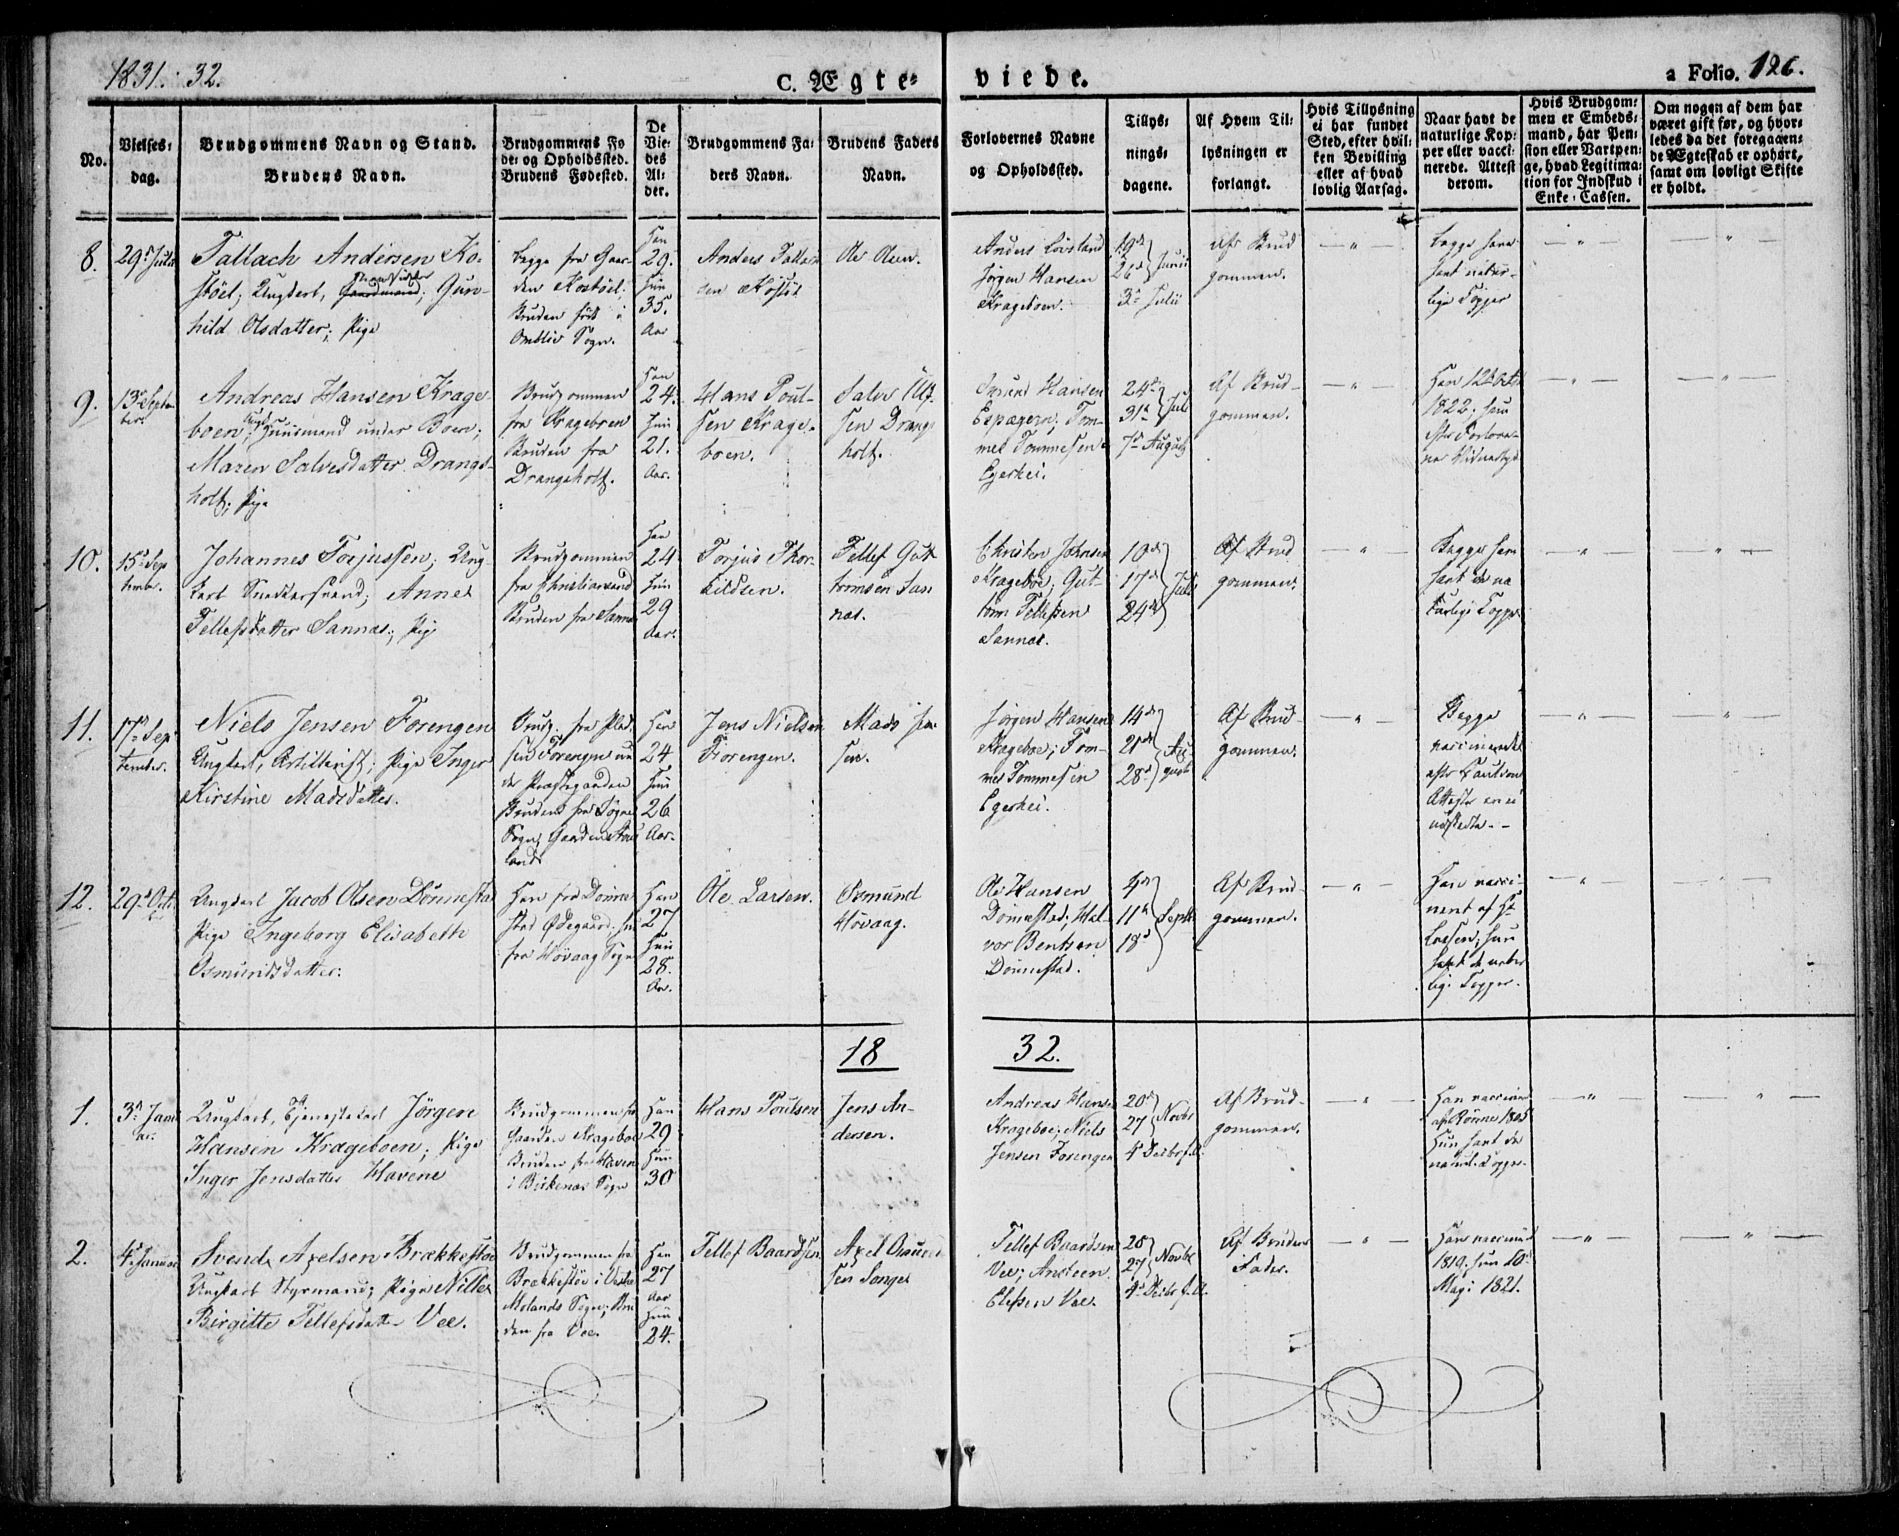 1831. 32.
C. Ægte-
viede.
a Folio. 126.
No.
Vielses-
dag.
Brudgommens Navn og Stand.
Brudens Navn.
Brudgommens Fø
de- og Opholdssted.
Brudens Fødested.
De
Vie-
des
Al-
der.
Brudgommens Fa-
ders Navn.
Brudens Faders
Navn.
Forlovernes Navne
og Opholdssted.
Tillys-
nings-
dagene.
Af Hvem Til-
lysningen er
forlangt.
Hvis Tillysning
ei har fundet
Sted, efter hvil-
ken Bevilling
eller af hvad
lovlig Aarsag.
Naar havt de
naturlige Kop-
per eller vacci-
nerede. Attest
derom.
Hvis Brudgom-
men er Embeds-
mand, har Pen-
sion eller Vartpen-
ge, hvad Legitima-
tion for Indskud i
Enke-Cassen.
Om nogen af dem har
været gift før, og hvor-
ledes da det foregaaen-
de Ægteskab er ophørt,
samt om lovligt Skifte
er holdt.
8.
29d Julii
Tallach Andersen Ko-
stöel; Ungkarl, Gaardmand; Gun-
hild Olsdatter; Pige
begge fra Gaar-
den Kostöel;
Bruden födt i
Omblie Sogn.
Han
29.
Hun
35.
Aar
Anders Tallach
sen Kostöl
Ole Olsen.
Anders Lövland
Jørgen Hansen
Krageboen.
19d
26d Junii
3d Julii
Af Brud
gommen.
begge have
havt natur-
lige Kopper
9.
13d Septem
ber.
Andreas Hansen Krage-
boen; Huusmand under Boen;
Maren Salvesdatter Drangs-
holt; Pige
Brudgommen
fra Krageboen
Bruden fra
Drangsholt.
Han
24.
Hun
21.
Aar.
Hans Poul-
sen Krage-
boen.
Salve Ulf-
sen Drangs
holt.
Hansen
Tom-
mes Tommesen
Egerhei.
24d
31d Juli
7d August
Af Brud-
gommen.
Han 12 Octb
1822. Hun
efter Forlover-
nes Vidnesbyrd
10.
15d Sep
tembr.
Johannes Torjussen; Ung
karl Snedkersvend; Anne
Tellefsdatter Sannes; Pige
Brudgommen
fra Christiansand
Bruden fra Sannes
Han
24
Hun
29
Aar.
Torjus Thor-
kildsen.
Tellef Gut-
tormsen San
nes.
Christen Johnsen
Krageboe; Gut-
torm Tellefsen
Sannes.
10d
17d Juli
24d
Af Brud
gommen.
Begge have
havt de na
turlige Kopper
11.
17d Sep
tember.
Niels Jensen Forengen
Ungkarl, Artillerist; Pige Inger
Kirstine Madsdatter.
Brudg. fra Plad
sen Forengen un
der Præstegaarden
Bruden fra Søgne
Sogn, Gaarden
land
Han
24
Hun
26
Aar.
Jens Nielsen
Forengen.
Mads Jen
sen.
Jørgen Hansen
Krageboe; Tom-
mes Tommesen
Egerhei.
14d
21d Au-
28d gusti
Af Brud-
gommen.
Begge
vaccinerede
efter Caution
Attester er ei
udstedte. -
12.
29d Octo
ber
Ungkarl Jacob Olsen Dönnestad
Pige Ingeborg Elisabeth
Osmundsdatter.
Han fra Dönne-
stad Ødegaard, hun
fra Høvaag Sogn
Han
27
Hun
28.
Aar.
Ole Larsen.
Osmund
Høvaag.
Ole Hansen
Dönnestad; Hal-
vor Bentsen
Dönnestad.
4d
11d Septbr
18d
Af Brud-
gommen.
Han vacci-
neret af Hr
Lassen; hun
havt de natur
lige Kopper.
18
32.
1.
3d Janu
ar.
Ungkarl, Tjenestekarl Jörgen
Hansen Krageboen; Pige
Inger Jensdatter Havene
Brudgommen fra
Gaarden Krageboe
Bruden fra Havene
i Birkenes Sogn
Han
29
Hun
30
Hans Poulsen
Jens An-
dersen.
Andreas Hansen
Krageboe; Niels
Jensen Forengen
20d
27 Novbr
4d Decbr
Af Brud-
gommen.
Han vaccineret
af Rönne 1805
Hun havt de
naturl. Kopper.
2.
4d Januar
Svend Axelsen Brækkestöe
Ungkarl Styrmand; Pige Nille
Birgitte Tellefsdatter Vee.
Brudgommen fra
Brækkestöe i Vestre
Molands Sogn; Bru
den fra Vee.
Han
27
Aar
Hun
24.
Tellef Baardsen
Axel
sen Songe
Tellef Baardsen
Vee; Ansteen
Elefsen Vee.
20
27 Novbr
4d Decbr
Af Brudens
Fader.
Han vaccineret
1819. hun 10d
Maji 1821.